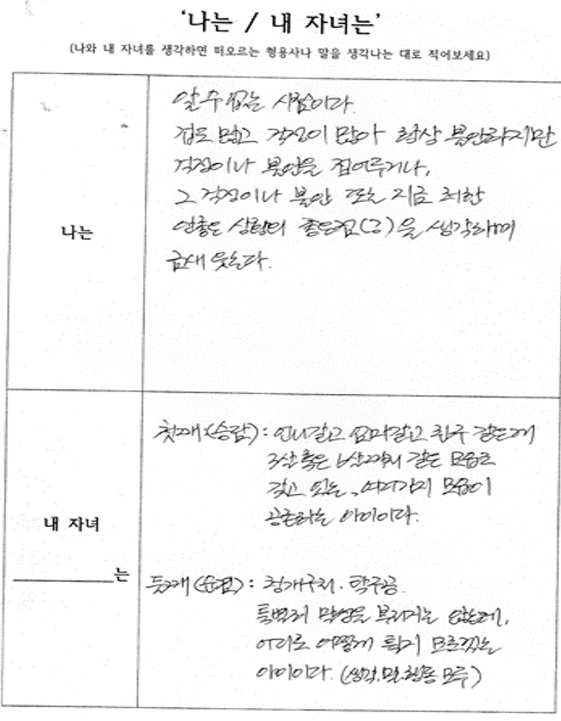 '나는 / 내 자녀는'
(나와 내 자녀를 생각하면 떠오르는 형용사나 말을 생각나는 대로 적어보세요)
나는
알 수 없는 사람이다.
겁도 많고 걱정이 많아 항상 불안하지만
걱정이나 불안을 집어푸거나,
그 걱정이나 불안 또는 지금 처한
안좋은 상황의 좋은점(?)을 생각하며
금새 웃는다.
내 자녀
는
첫째(승람): 언니같고 엄마같고 친구 같은데
3살 혹은 6살까지 같은 모습도
갖고 있는, 여러가지 모습이
공존하는 아이이다.
둘째: 청개구리. 탁구공.
특별히 말썽을 부리지는 않는데,
어디로 어떻게 튈지 모르겠는
아이이다. (생각.말.행동 모두)